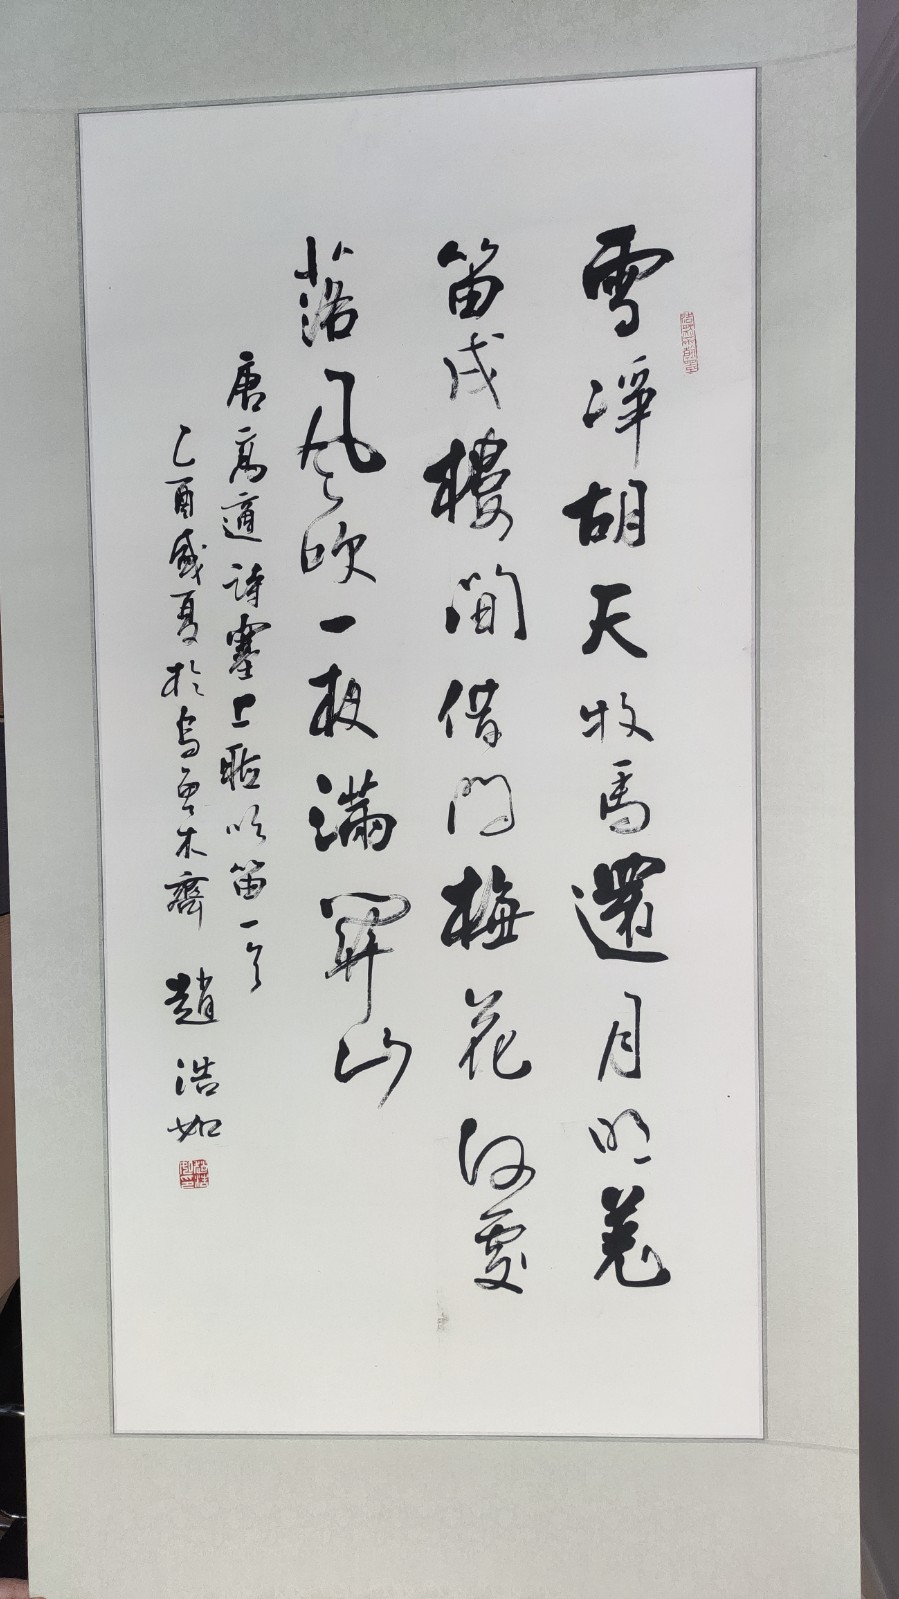 雪淨胡天牧馬還月明羌
笛戍樓間借問梅花何處
落風吹一夜滿關山
唐高適詩塞上聽吹笛一首
乙酉盛夏於烏魯木齊 趙浩如